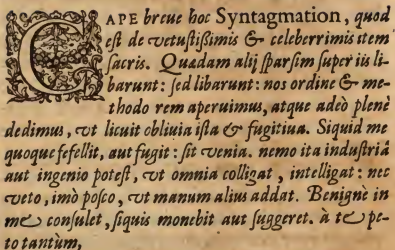 CAPE breue hoc Syntagmation, quod
est de vetustißimis & celeberrimis item
sacris. Quædam alij sparsim super iis li-
barunt: sed libarunt: nos ordine & me-
thodo rem aperuimus, atque adeò plenè
dedimus, vt licuit obliuia ista & fugitiua. Siquid me
quoque fefellit, aut fugit: sit venia. nemo ita industriâ
aut ingenio potest, vt omnia colligat, intelligat: nec
veto, imò posco, vt manum alius addat. Benignè in
me consulet, siquis monebit aut suggeret. à te pe-
to tantùm,